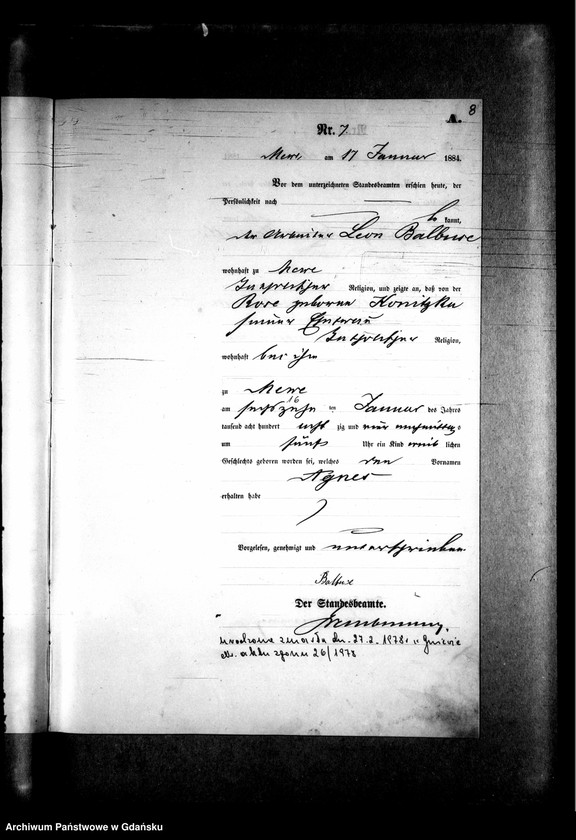 8
A.
Nr. 7
Mewe am 17 Januar 1884.
Vor dem unterzeichneten Standesbeamten erschien heute, der
Persönlichkeit nach
be kannt,
der Arbeiter Leon
wohnhaft zu Mewe
katholischer Religion, und zeigte an, daß von der
Rose geborene Konitzka
seiner Ehefrau
katholischer Religion,
wohnhaft bei ihm
zu Mewe
am sechszehn 16 ten Januar des Jahres
tausend acht hundert acht zig und vier nachmittags
um fünf Uhr ein Kind weib lichen
Geschlechts geboren worden sei, welches den Vornamen
Agnes
erhalten habe
Vorgelesen, genehmigt und unterschrieben.
Der Standesbeamte.
zmarła dn. 27.2. 1978 w Gniewie
nr. aktu zgonu 26/1978
Archiwum Państwowe w Gdańsku